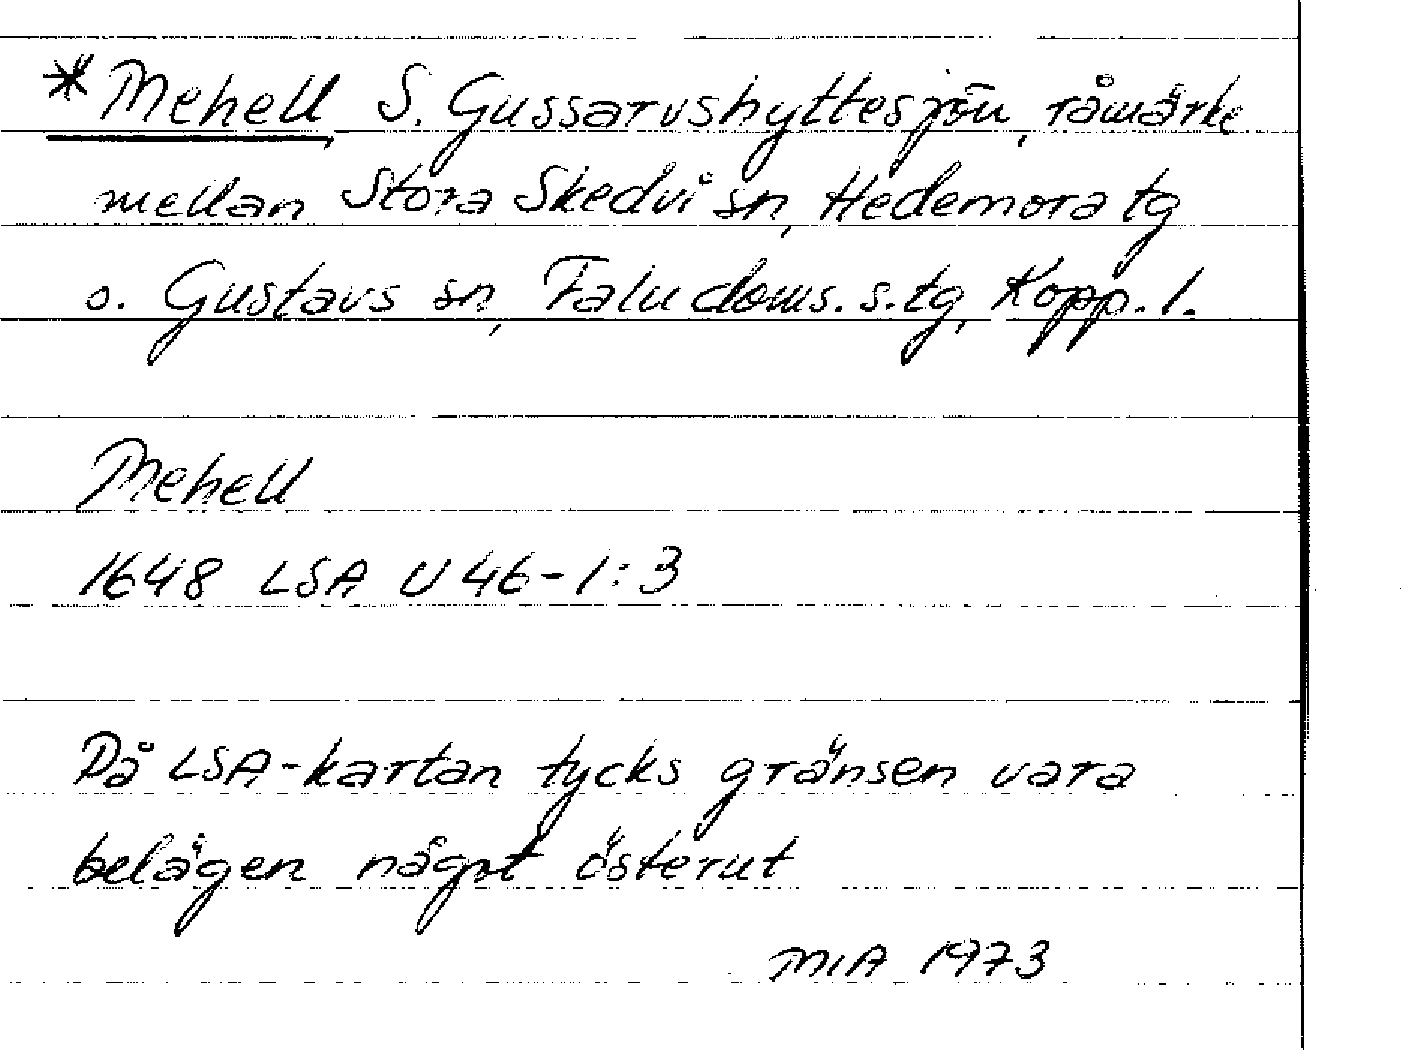 *Mehell, S. Gussarvshyttesjön, råmärke
mellan Stora Skedvi sn, Hedemora tg
o. Gustavs sn, Falu doms. s. tg, Kopp. l.
Mehell
1648 LSA U 46-1:3
På LSA-kartan tycks gränsen vara
belägen något österut
MIA 1973